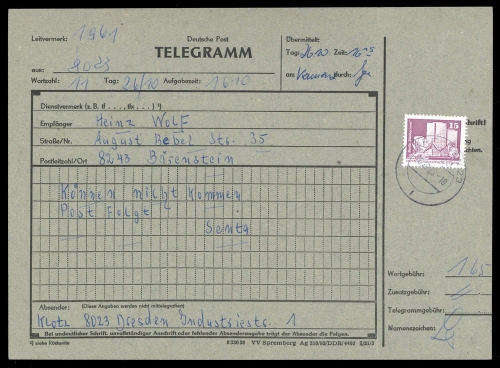 Leitvermerk: 1961
Deutsche Post
TELEGRAMM
Übermittelt:
Tag: 26.10 Zeit: 16
am durch:
aus: 9023
Wortzahl: 11 Tag: 26/10 Aufgabezeit: 16.10
Dienstvermerk (z. B. tf . . . ., tlx . . .) ¹)
Empfänger Heinz Wolf
Straße/Nr. August Bebel Str. 35
Postleitzahl/Ort 8243 Bärenstein
Können nicht kommen
Post Folgt
Senta
Absender: (Diese Angaben werden nicht mittelegrafiert)
Klotz 8023 Dresden Industriestr. 1
Bei undeutlicher Schrift, unvollständiger Anschrift oder fehlender Absenderangabe trägt der Absender die Folgen.
¹) siehe Rückseite
VV Spremberg Ag 310/82/DDR/4402
15
schrift!
Wortgebühr: 165
Zusatzgebühr:
Telegrammgebühr:
Namenszeichen: